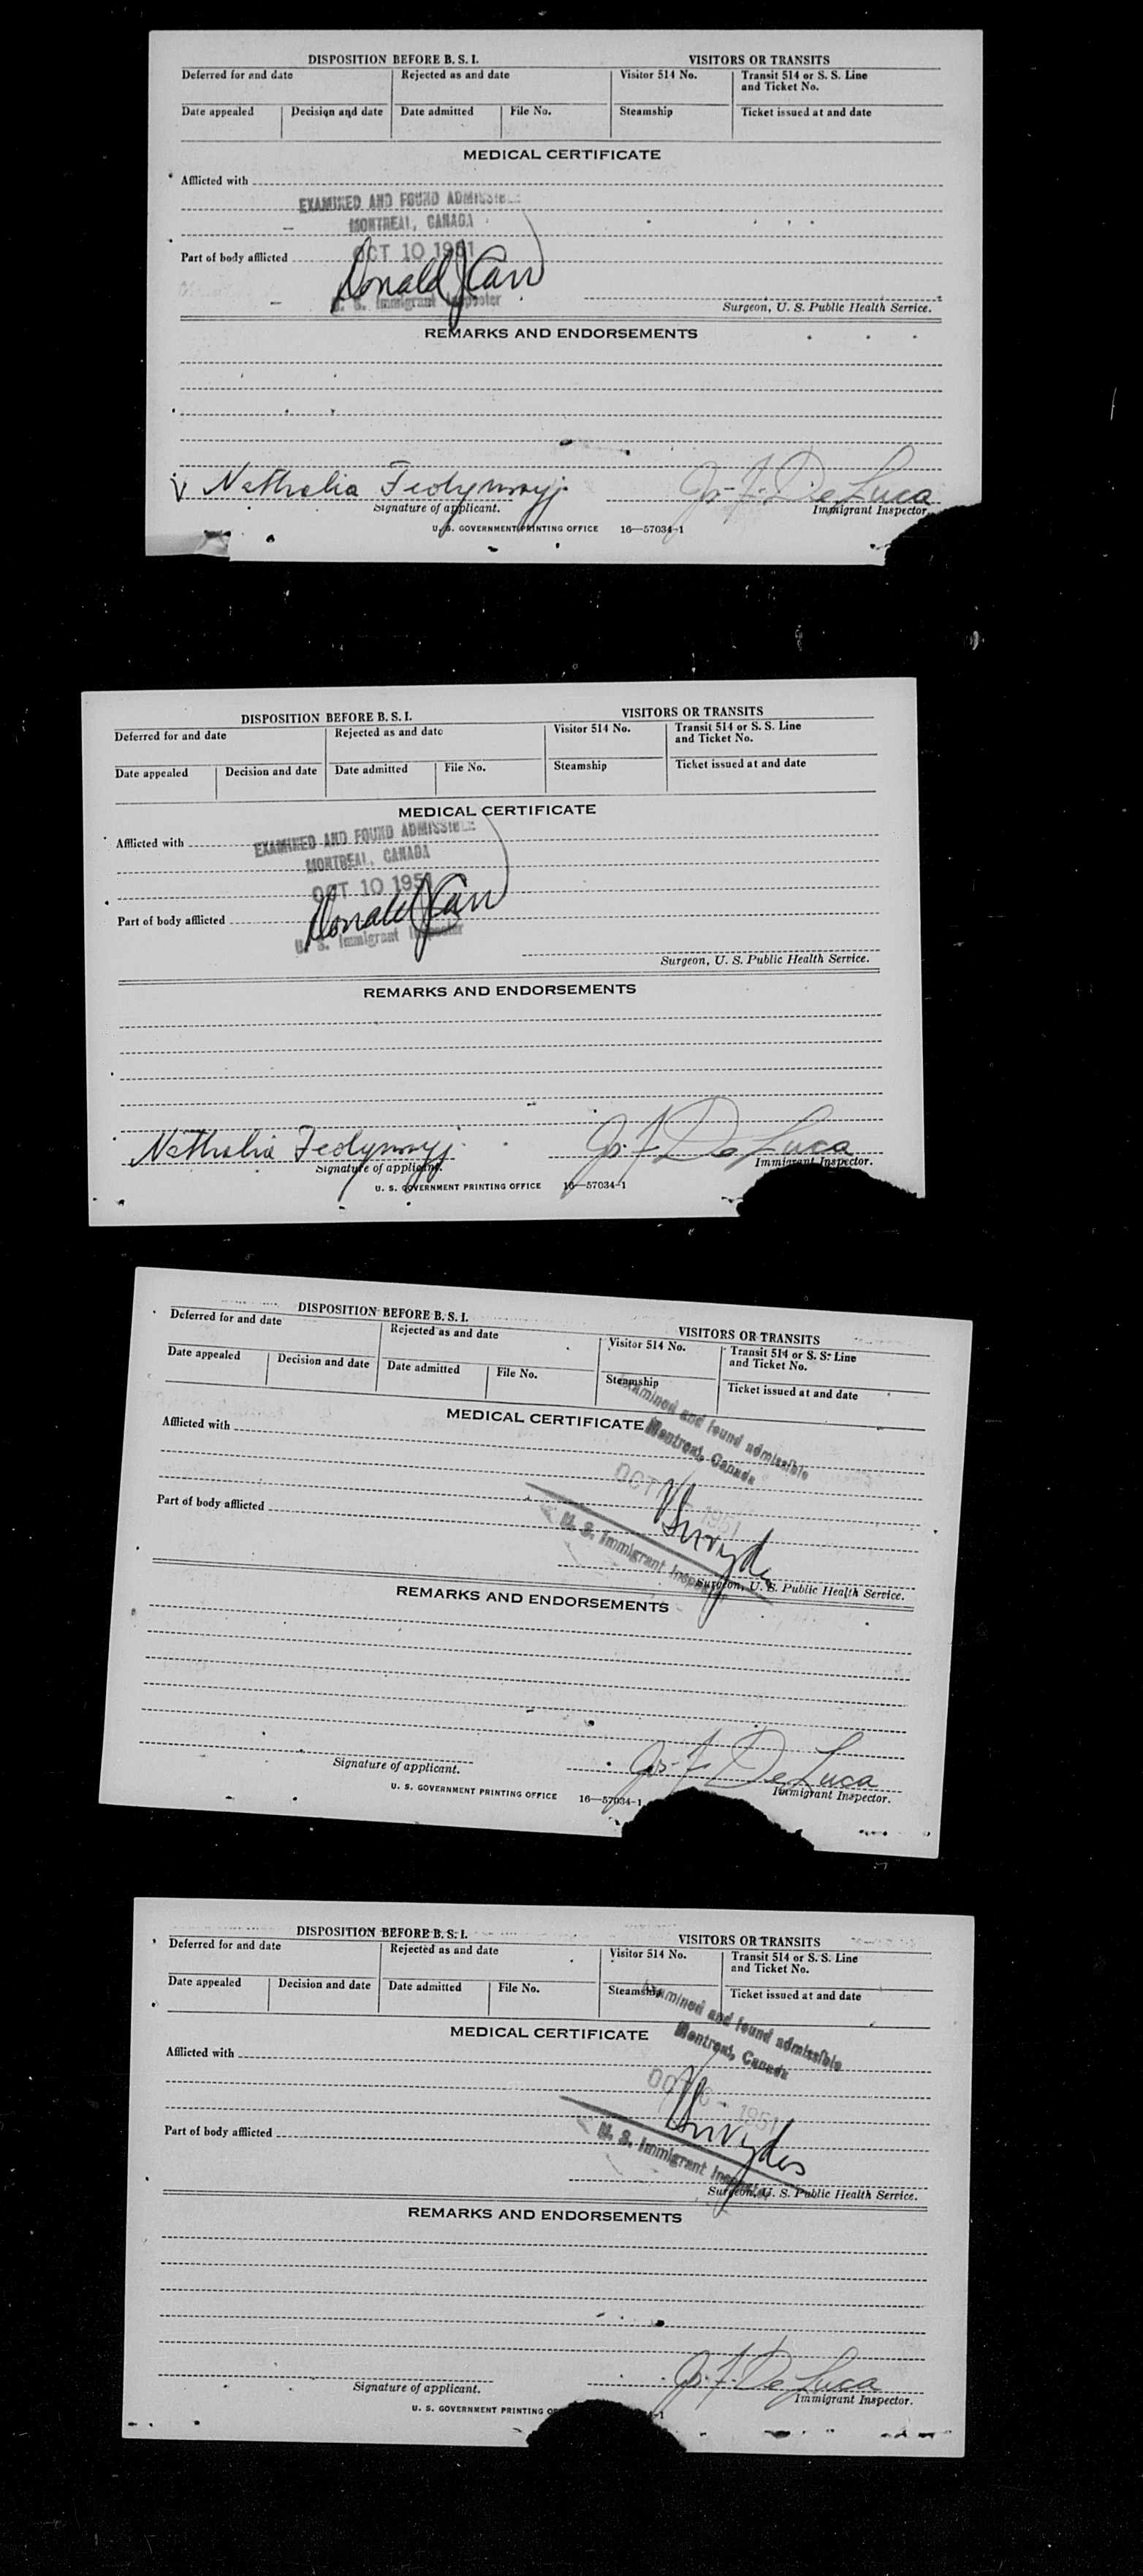 DISPOSITION BEFORE B. S. I. VISITORS OR TRANSITS
Deferred for and date Rejected as and date Visitor 514 No. Transit 514 or S. S. Line and Ticket No.
Date appealed Decision and date Date admitted File No. Steamship Ticket issued at and date
MEDICAL CERTIFICATE
Afflicted with
EXAMINED AND FOUND ADMISSIBLE
MONTREAL, CANADA
OCT 10 1951
Part of body afflicted
Donald J Carr
U. S. Immigrant Inspector
Surgeon, U. S. Public Health Service.
REMARKS AND ENDORSEMENTS
Nathalia J. F. De Luca
Signature of applicant. Immigrant Inspector.
U. S. GOVERNMENT PRINTING OFFICE 16—57034-1
DISPOSITION BEFORE B. S. I. VISITORS OR TRANSITS
Deferred for and date Rejected as and date Visitor 514 No. Transit 514 or S. S. Line and Ticket No.
Date appealed Decision and date Date admitted File No. Steamship Ticket issued at and date
MEDICAL CERTIFICATE
Afflicted with
EXAMINED AND FOUND ADMISSIBLE
MONTREAL, CANADA
OCT 10 1951
Part of body afflicted
Donald J Carr
U. S. Immigrant Inspector
Surgeon, U. S. Public Health Service.
REMARKS AND ENDORSEMENTS
Nathalia J. F. De Luca
Signature of applicant. Immigrant Inspector.
U. S. GOVERNMENT PRINTING OFFICE 16—57034-1
DISPOSITION BEFORE B. S. I. VISITORS OR TRANSITS
Deferred for and date Rejected as and date Visitor 514 No. Transit 514 or S. S. Line and Ticket No.
Date appealed Decision and date Date admitted File No. Steamship Ticket issued at and date
MEDICAL CERTIFICATE
Examined and found admissible
Montreal, Canada
Afflicted with
OCT 1951
Part of body afflicted
U. S. Immigrant Inspector
Surgeon, U. S. Public Health Service.
REMARKS AND ENDORSEMENTS
J. F. De Luca
Signature of applicant. Immigrant Inspector.
U. S. GOVERNMENT PRINTING OFFICE 16—57034-1
DISPOSITION BEFORE B. S. I. VISITORS OR TRANSITS
Deferred for and date Rejected as and date Visitor 514 No. Transit 514 or S. S. Line and Ticket No.
Date appealed Decision and date Date admitted File No. Steamship Ticket issued at and date
Examined and found admissible
MEDICAL CERTIFICATE
Montreal, Canada
Afflicted with
1951
Part of body afflicted
U. S. Immigrant Inspector
Surgeon, U. S. Public Health Service.
REMARKS AND ENDORSEMENTS
J. F. De Luca
Signature of applicant. Immigrant Inspector.
U. S. GOVERNMENT PRINTING